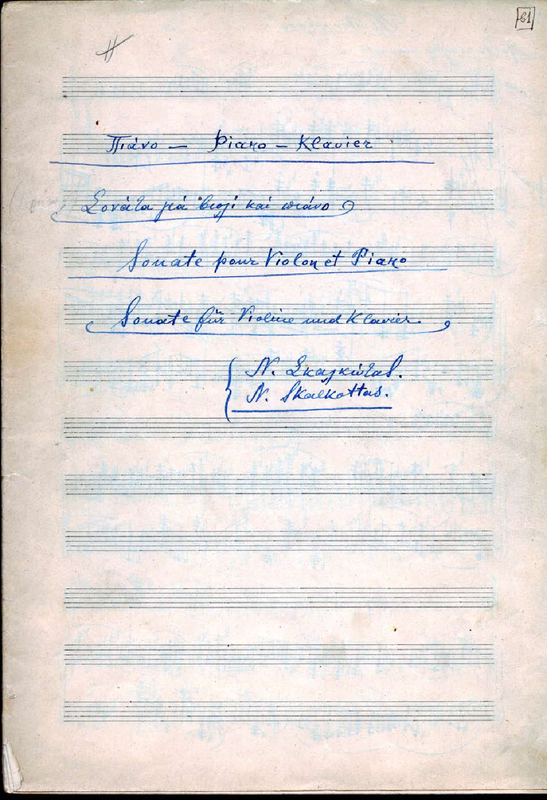 61
Πιάνο — Piano — Klavier
Σονάτα γιά βιολί καί πιάνο
Sonate pour Violon et Piano
Sonate für Violine und Klavier.
N. Σκαλκώτας.
N. Skalkottas.